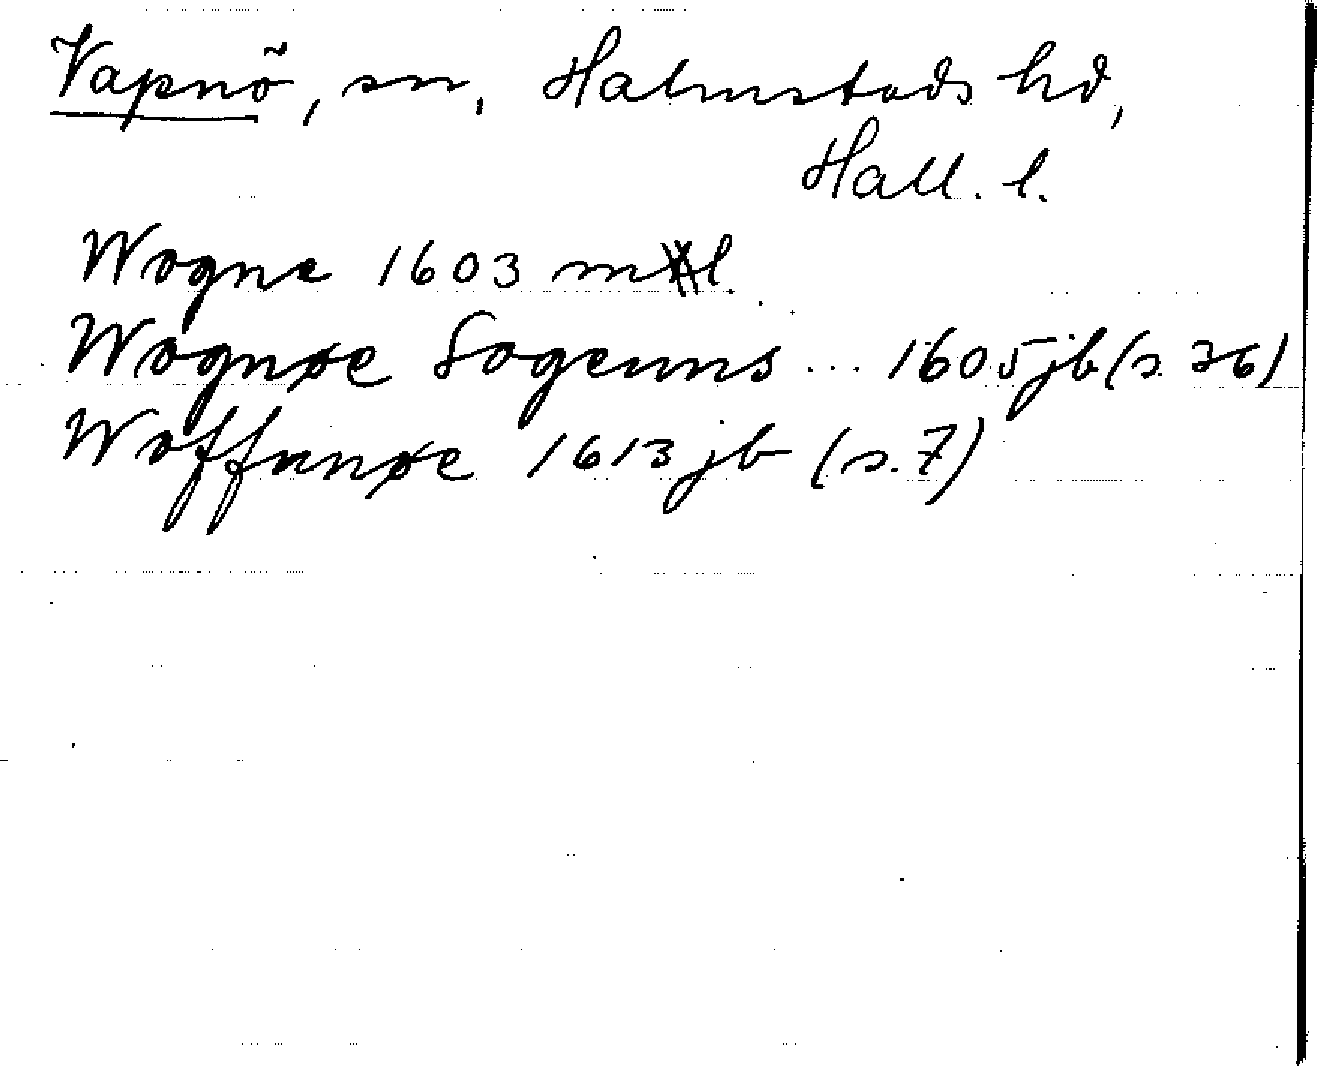 Vapnö, sn, Halmstads hd,
Hall. l.
Wogne 1603 ml.
Wognøe Sogenns ... 1605 jb (s. 26)
Woffvnøe 1613 jb (s. 7)